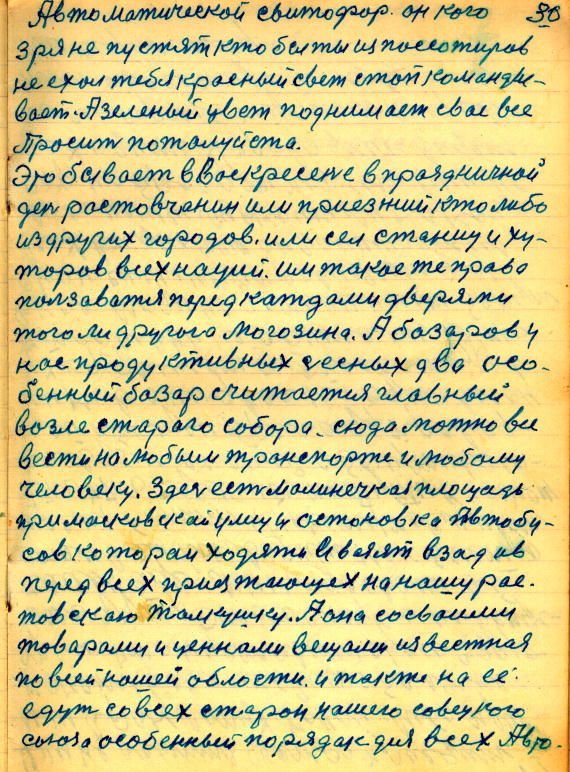 Автоматической свитофор. он кого 30
зря не пустят кто бы ты из поссотиров
не ехол тебя красный свет стой команды-
вает. А зеленый цвет поднимает свае все
просит поталуйста.
Это бывает в Васкресене в праздничной
ден растовчанин или приезтий кто либо
из других городов. или сел станиц и ху-
торов всех наций. им такое те право
ползаватя перед катдами дверями
того ли другога могозина. А базаров у
нас продуктивных чесных два осо-
бенный базар считается главный
возле стараго собора. сюда мотно все
вести на любым транспорте и любому
человеку. Здес ест малинечкая площадь
при масковской улицы остоновка Автобу-
сов котораи ходят и взад в
перед всех приезтающех на нашу рас-
товскаю толкушку. А она со сваими
товарами и ценнами вещами известная
по всей нашей облости. и также на её
едут со всех старон нашего совецкого
союза особенный порядак для всех Авто-